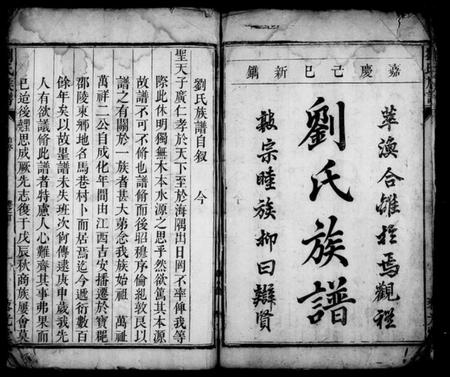 嘉慶己巳新鐫
萃渙合離於焉觀禮
劉氏族譜
敦宗睦族抑曰辯賢
劉氏族譜自叙　今
聖天子廣仁孝於天下至於海隅出日罔不率俾我等
際此休明獨無木本水源之思乎然欲篤其本源
故譜不可不脩也譜脩而後昭穆序倫紀敦艮以
譜之有關於一族者甚大弟念我族始祖　萬祥
萬祥二公自成化年間由江西吉安播遷於寶
邵陵東鄉地名馬巷村卜而居焉迄今遞衍數百
餘年矣以故墨譜未失班次猶傳逮庚申歲我先
人有欲議脩此譜者特慮人心難齊其事弗果而
已迨後經思成厥先志復于戊辰秋商族屢會莫